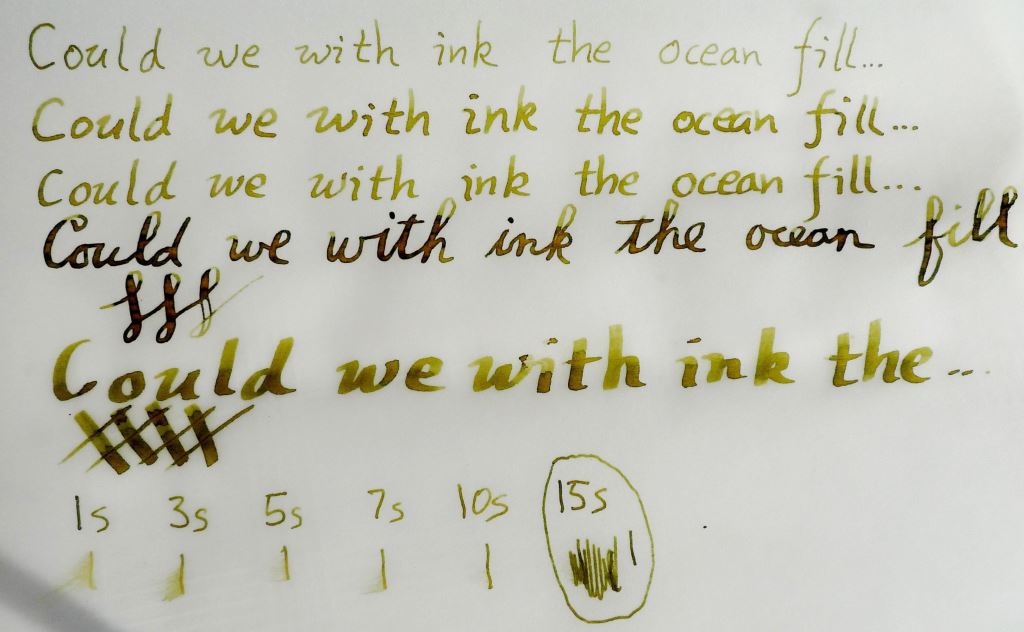 Could we with ink the ocean fill...
Could we with ink the ocean fill...
Could we with ink the ocean fill...
Could we with ink the ocean fill
Could we with ink the...
1s 3s 5s 7s 10s 15s